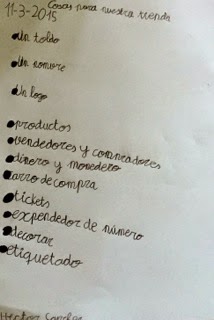 Cosas para nuestra tienda
11-3-2015
Un toldo
Un nomvre
Un logo
productos
vendedores y compradores
dinero y monedero
carro de compra
tickets
expendedor de número
decorar
etiquetado
Hector